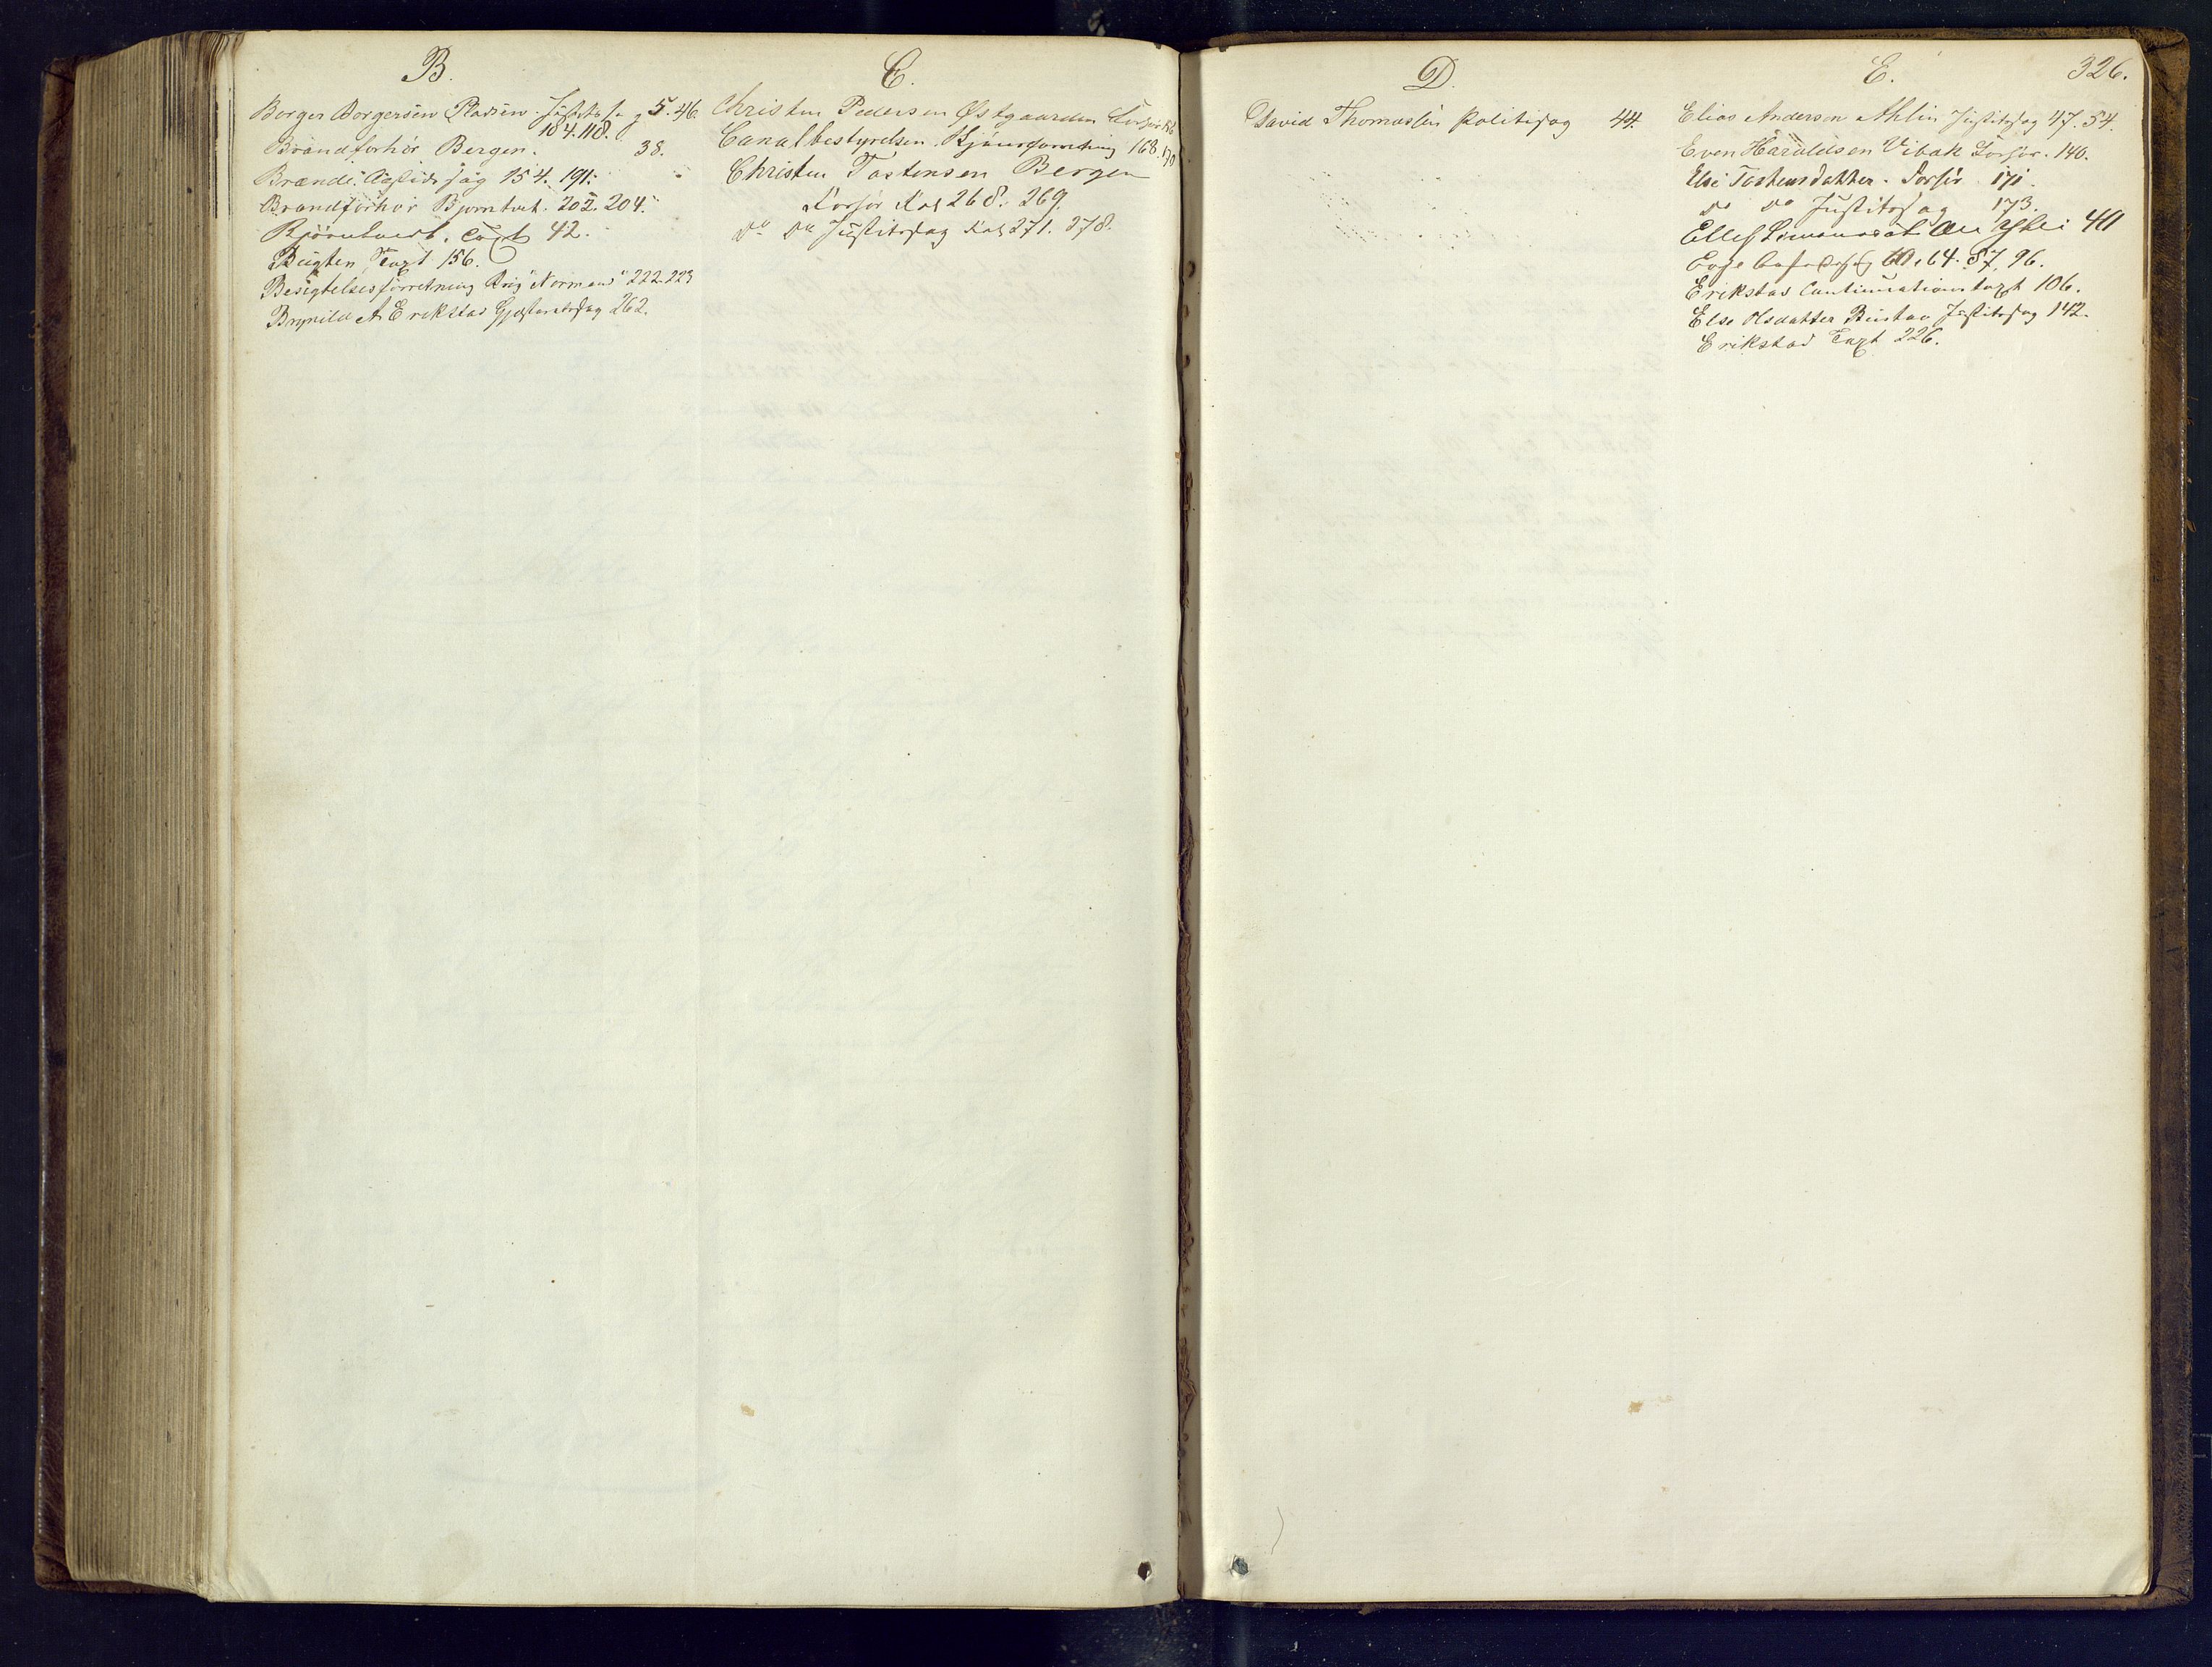 B.
Borger Borgersen Pladsen Justitssag 5. 46.
104. 118.
Brandforhör Bergen. 38.
Brændi. sag 154. 191.
Brandforhör Bjorntvet. 202. 204.
Bjørntvedt, Taxt 42.
Bugten, Taxt 156.
Besigtelsesforretning Brig "Normand" 222-223
Brynild A Erikstad Gjæstaratssag 262.
C.
Christen Pedersen Østgaarden Forhör 156
Canalbestyrelsen. Skjønsforretning 168. 170
Christen Tostensen Bergen
Forhør Fol 268. 269.
do do Justitssag Fol 271. 278.
D.
David Thomassen Politisag 44.
E. 326.
Elias Andersen Ahlin Justitssag 47. 54.
Even Haraldsen Vibak Forhör. 140.
Else Tostensdatter. Forhör 171.
do do Justitssag 173.
40
60. 64. 87. 96.
Erikstad Continuationstaxt 106.
Else Olsdatter Bustad Justitssag 142.
Erikstad Taxt 226.